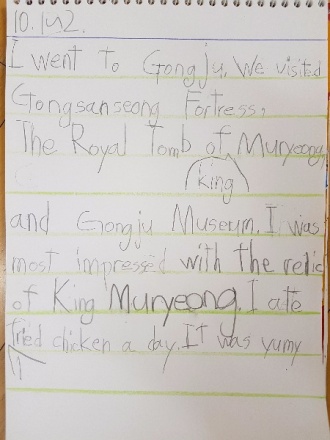 10.1y2.
I went to Gongju. We visited
Gongsanseong Fortress,
The Royal Tomb of Muryeong,
king
and Gongju Museum. I was
most impressed with the relic
of King Muryeong. I ate
fried chicken a day. It was yumy